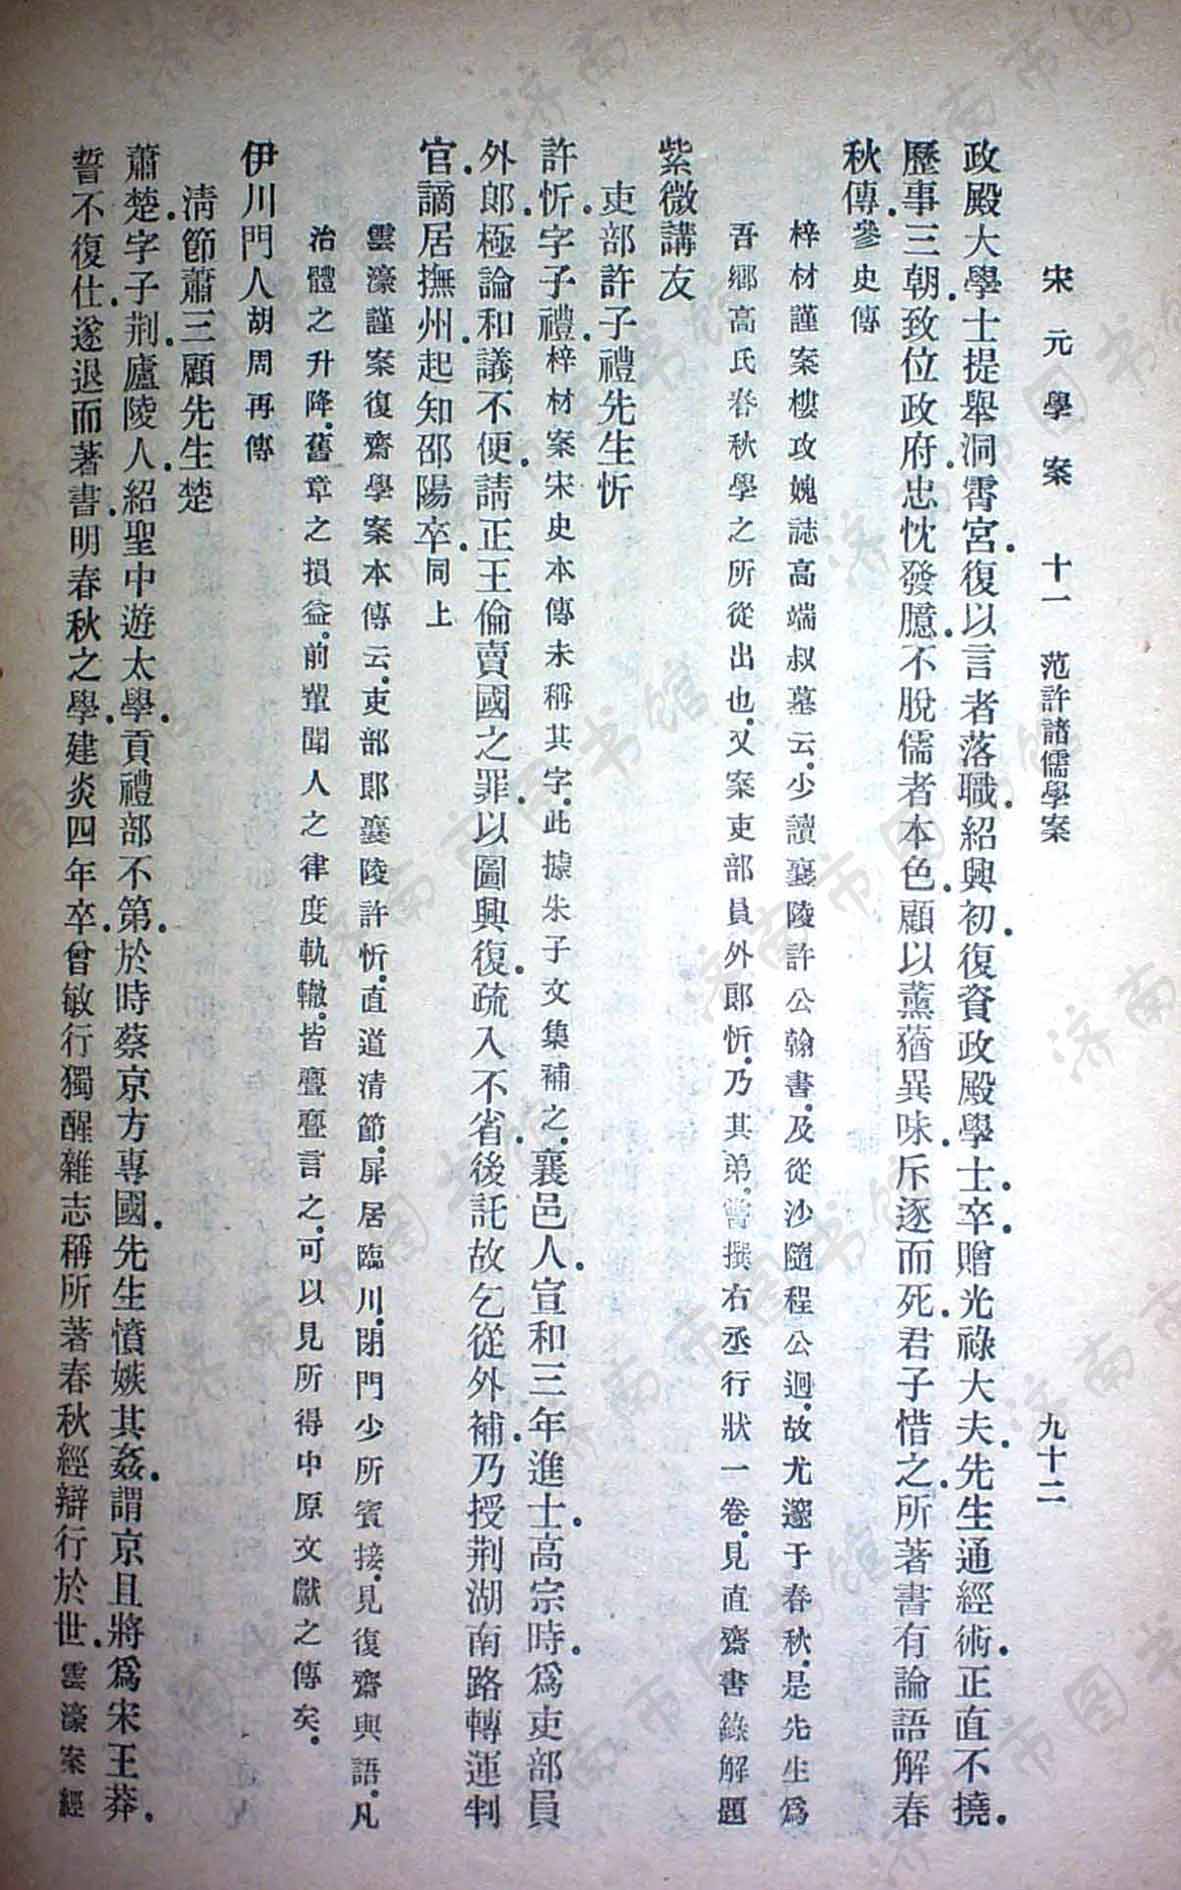 宋元學案 十一 范許諸儒學案 九十二
政殿大學士提舉洞霄宮.復以言者落職.紹興初.復資政殿學士.卒.贈光祿大夫.先生通經術.正直不撓.
歷事三朝.致位政府.忠忱發臆.不脫儒者本色.顧以薰蕕異味.斥逐而死.君子惜之.所著書有論語解春
秋傳.參史傳
梓材謹案樓攻媿誌高端叔墓云.少讀襄陵許公翰書.及從沙隨程公迥.故尤邃于春秋.是先生為
吾鄉高氏春秋學之所從出也.又案吏部員外郎忻.乃其弟.嘗撰右丞行狀一卷.見直齋書錄解題
紫微講友
吏部許子禮先生忻
許忻.字子禮.梓材案宋史本傳未稱其字.此據朱子文集補之.襄邑人.宣和三年進士.高宗時.爲吏部員
外郎.極論和議不便.請正王倫賣國之罪.以圖興復.疏入不省.後託故乞從外補.乃授荆湖南路轉運判
官.謫居撫州.起知邵陽.卒.同上
雲濠謹案復齋學案本傳云.吏部郎襄陵許忻.直道清節.屏居臨川.閉門少所賓接.見復齋與語.凡
治體之升降.舊章之損益.前輩聞人之律度軌轍.皆亹亹言之.可以見所得中原文獻之傳矣.
伊川門人胡周再傳
清節蕭三顧先生楚
蕭楚.字子荆.廬陵人.紹聖中遊太學.貢禮部不第.於時蔡京方專國.先生憤嫉其姦.謂京且將爲宋王莽.
誓不復仕.遂退而著書.明春秋之學.建炎四年卒.曾敏行獨醒雜志稱所著春秋經辯行於世.雲濠案經
濟南市图书馆